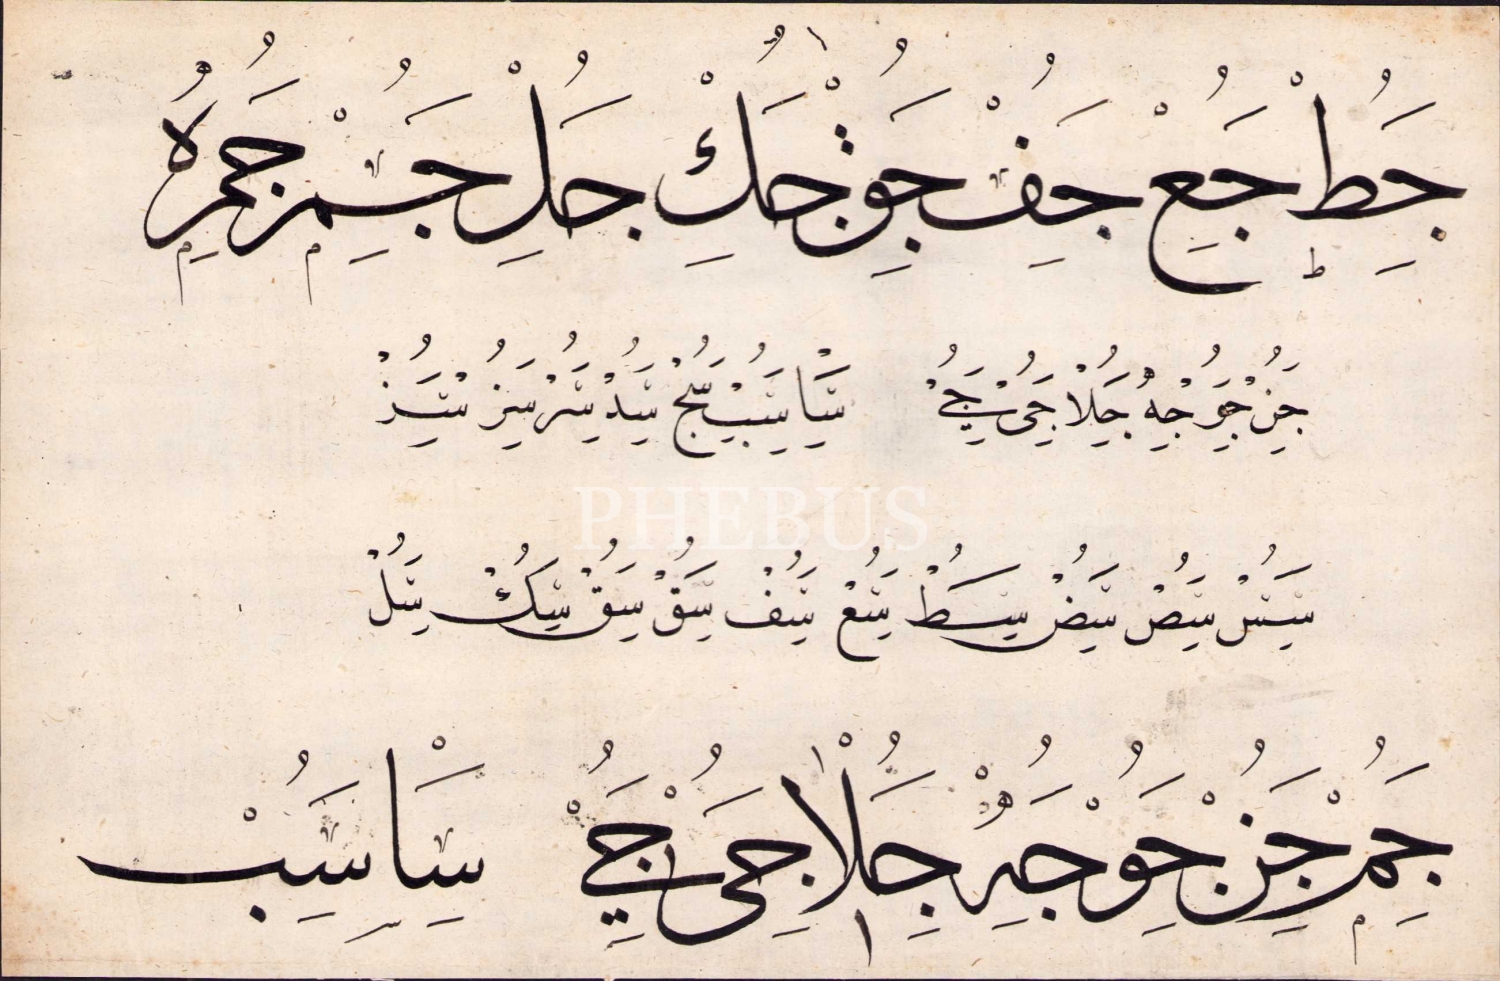 جَِطُْ جَِعُْ جَِفُْ جَِقُْ جَِكُْ جَِلُْ جَِمُْ جَِمُْ جَِهُْ
جَِنُْ جَِوُْ جَِهُْ جَِلَاْ جَِىُْ جَِيُْ سَِاْ سَِبُْ سَِجُْ سَِدُْ سَِرُْ سَِرُْ سَِرُْ
PHEBUS
سَِسُْ سَِصُْ سَِصُْ سَِطُْ سَِعُْ سَِفُْ سَِقُْ سَِقُْ سَِكُْ سَِلُْ
جَِمُْ جَِنُْ جَِوُْ جَِهُْ جَِلَاْ جَِىُْ جَِيُْ سَِاْ سَِبُْ